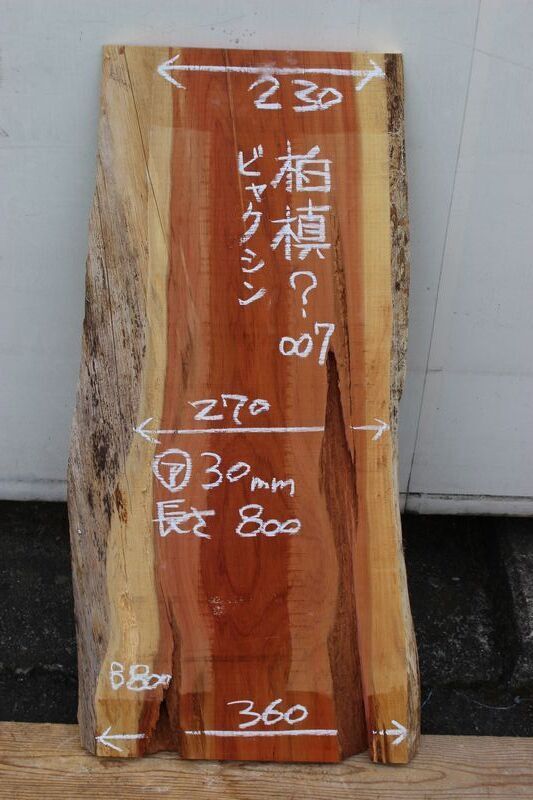 230
柏槙?
ビャクシン
007
270
㋐30mm
長さ 800
B800
360